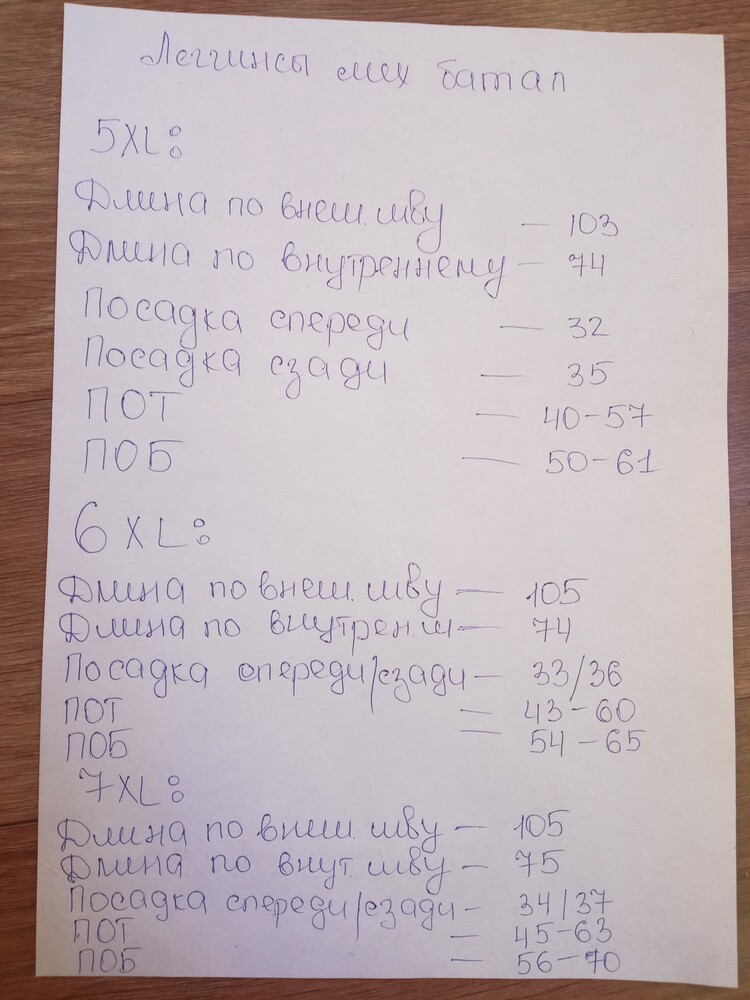 Леггинсы мех батал
5XL:
Длина по внеш. шву — 103
Длина по внутреннему — 74
Посадка спереди — 32
Посадка сзади — 35
ПОТ — 40-57
ПОБ — 50-61
6XL:
Длина по внеш. шву — 105
Длина по внутрен.ш — 74
Посадка спереди/сзади — 33/36
ПОТ — 43-60
ПОБ — 54-65
7XL:
Длина по внеш. шву — 105
Длина по внут. шву — 75
Посадка спереди/сзади — 34/37
ПОТ — 45-63
ПОБ — 56-70